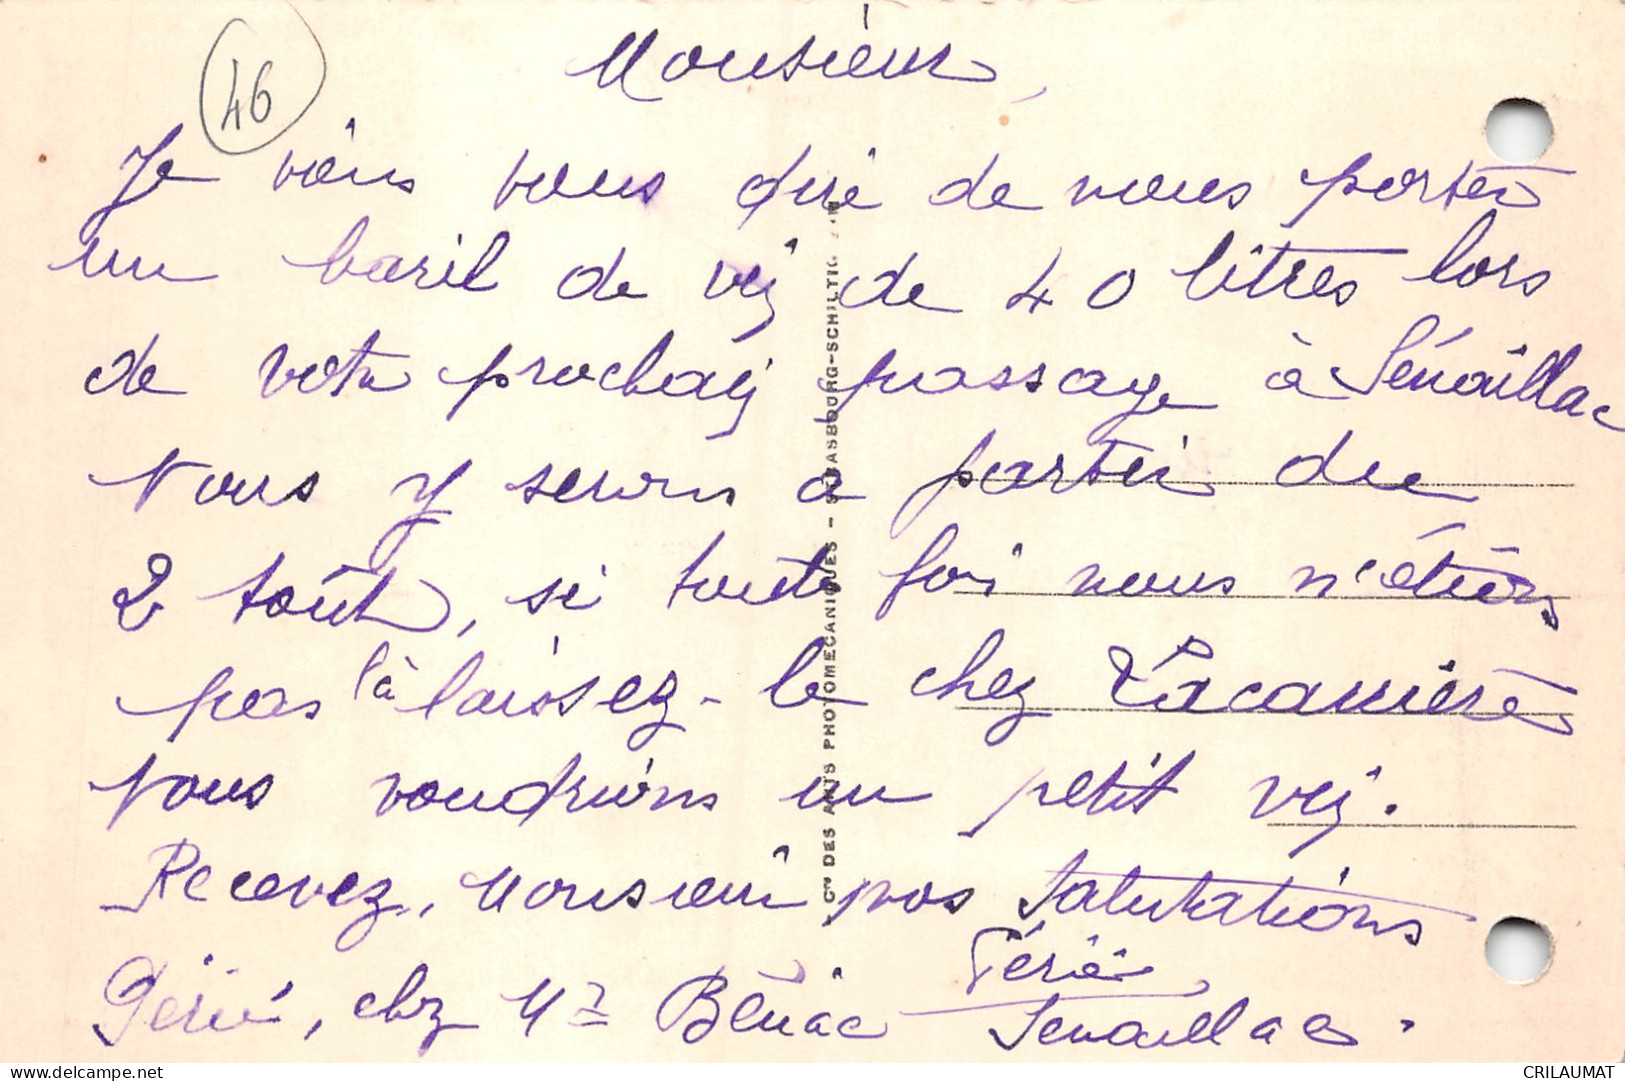 46
Monsieur,
Je viens vous dire de nous porter
un baril de vin de 40 litres lors
de votre prochain passage à Sénaillac
Nous y serons a partir du
2 Août, si toute foi nous n'étions
pas là laissez-le chez Lacarrière
Nous voudrions un petit vin.
Recevez, Monsieur nos salutations
Férié
Férié, chez Mr Bénac Senaillac.
Cie DES ARTS PHOTOMECANIQUES - STRASBOURG-SCHILTIG
CRILAUMAT